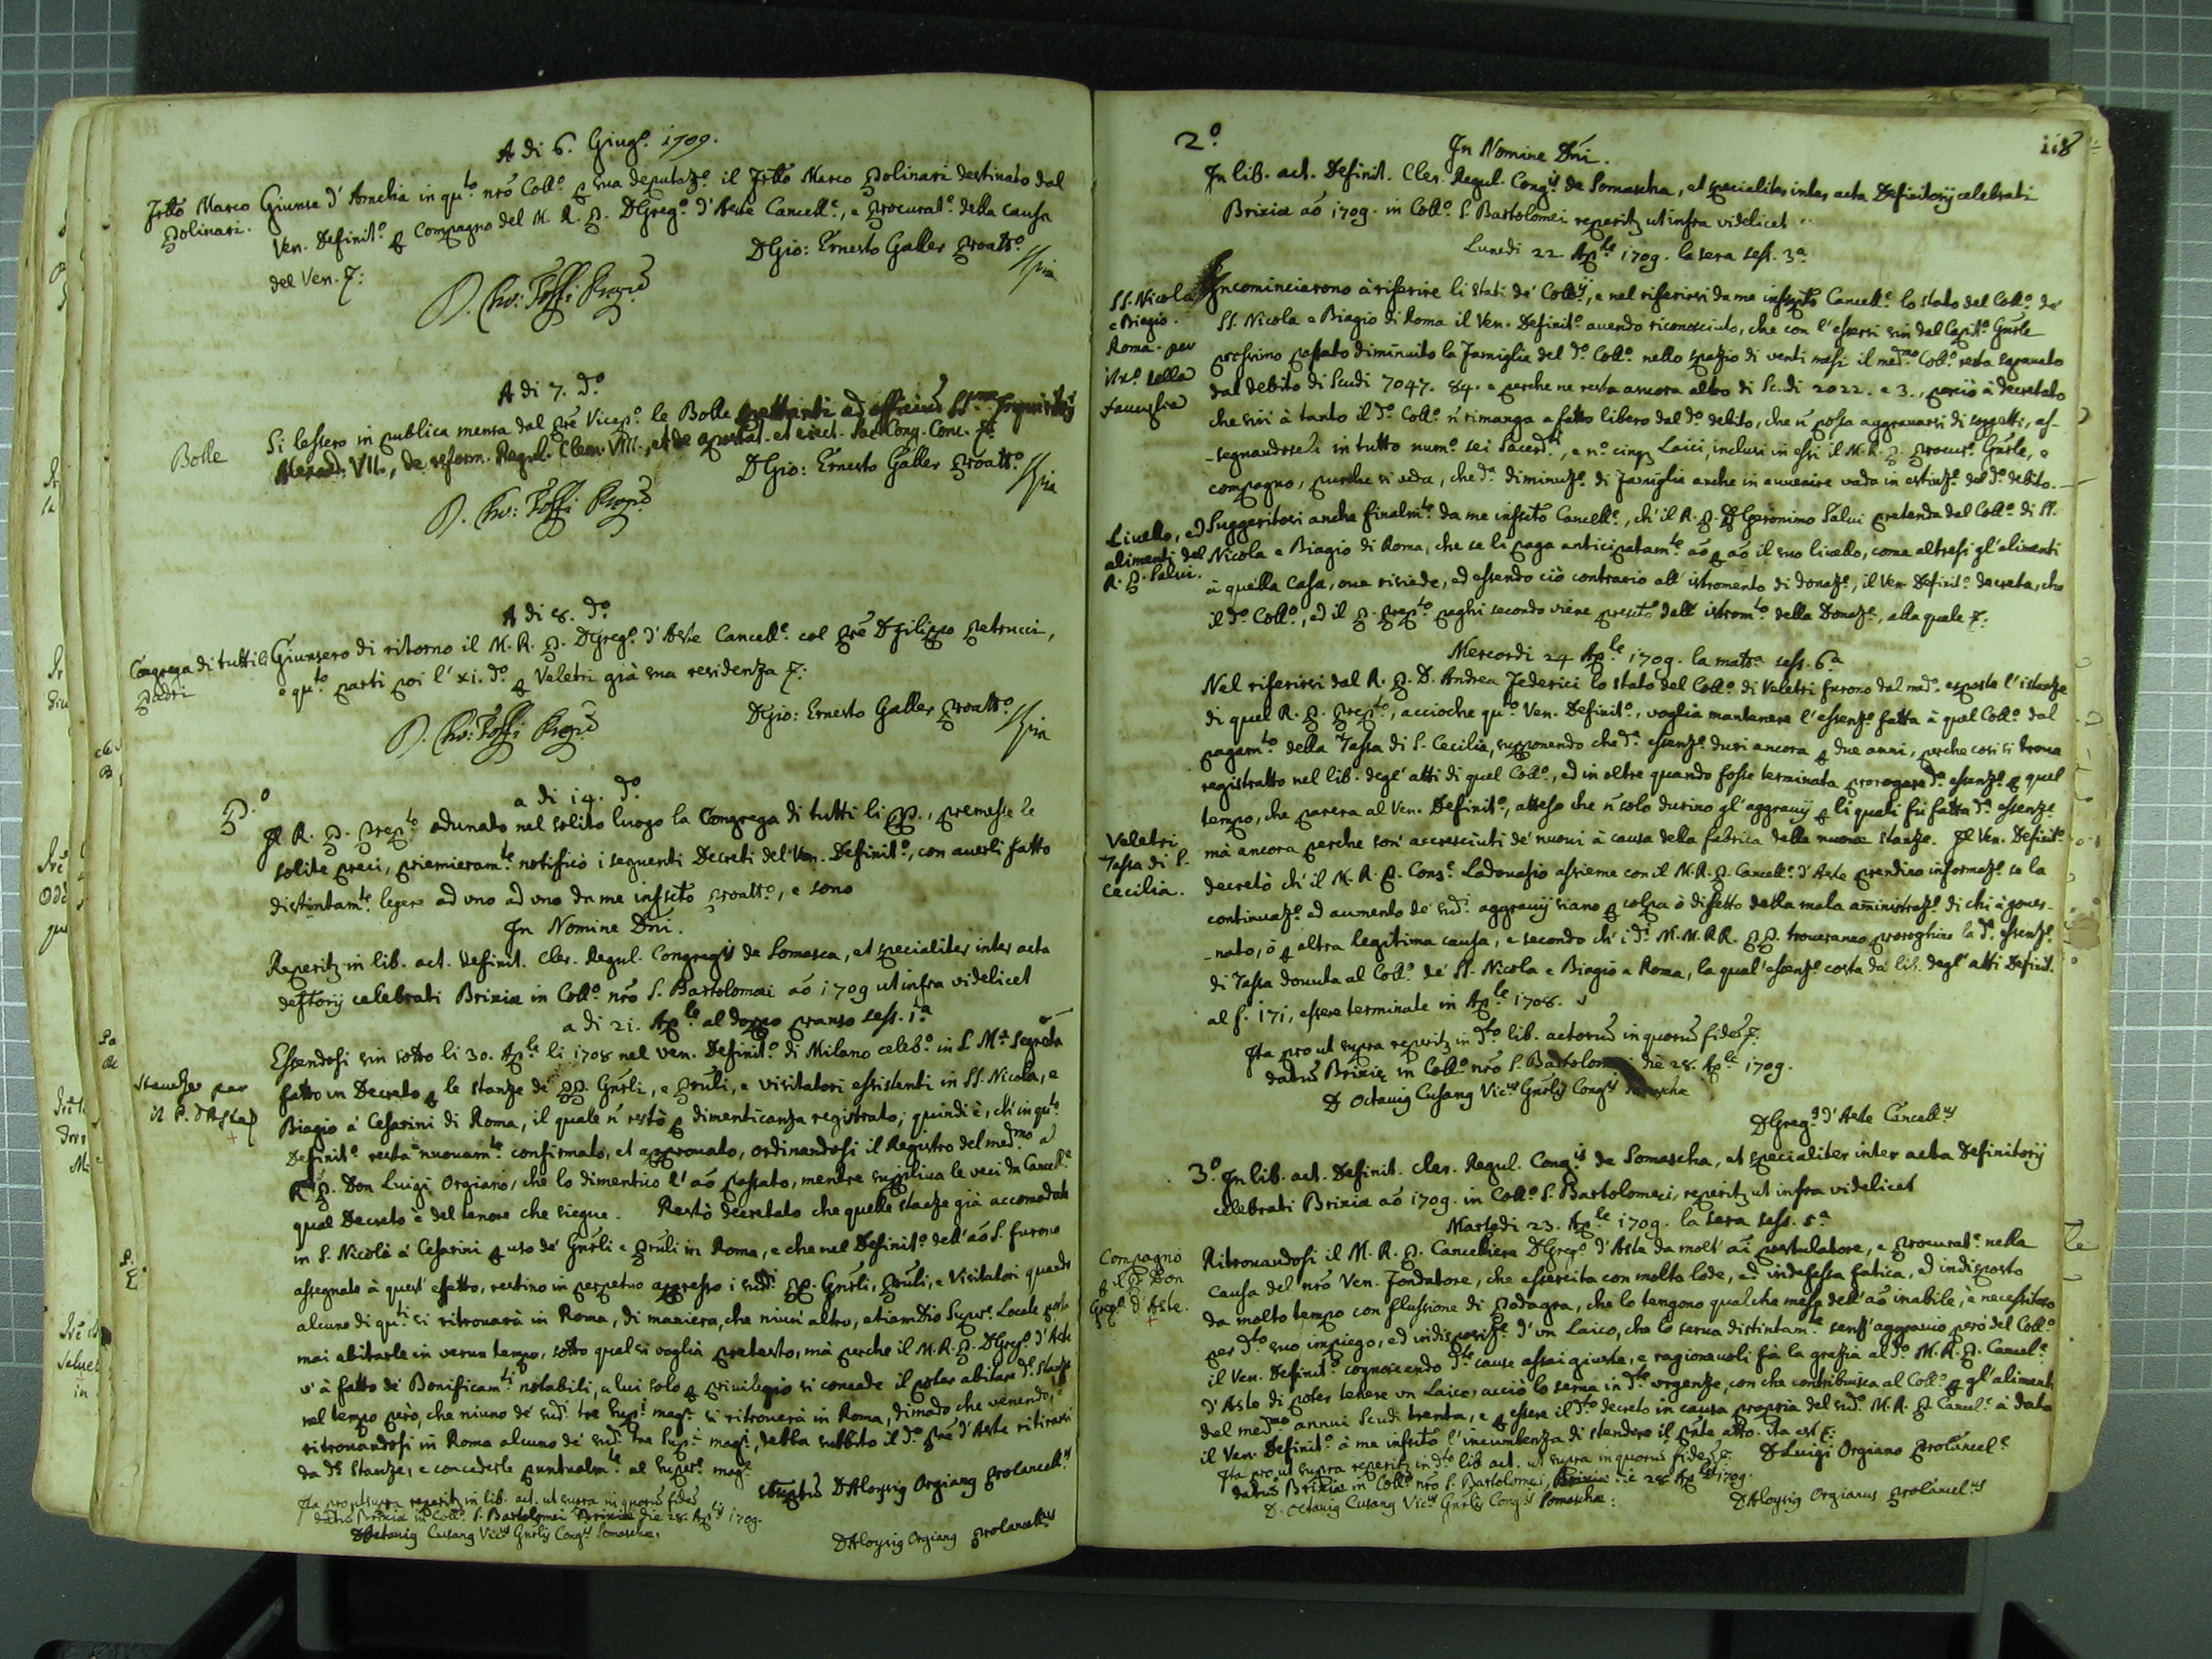 A di 6. Giug.o 1709.
Frtto Marco Polinari.
Giunse d' Amelia in qu.to nrõ Coll.o p sua deputaz.e il Frtto Marco Polinari destinato dal
Ven. Definit.o p Compagno del M. R. P. D Greg.o d'Aste Cancell.e, e Procurat.e della Causa
del Ven. F:
D Gio: Ernesto Galler Proatt.o
A di 7. d.o
Bolle
Si lessero in publica mensa dal Prē Vicep.o le Bolle
Alexad. VII., de reform. Regul. Clem. VIII., et de apostat. et eiect. Sac. Cong. Conc. F.
D Gio: Ernesto Galler Proatt.o
A di 8. d.o
Giunsero di ritorno il M. R. P. D Greg.o d'Aste Cancell.e col Prē D Filippo Petrucci,
e qu.to parti poi l' xi. d.o p Veletri già sua residenza F:
D Gio: Ernesto Galler Proatt.o
Congrega di tutti li Padri
P.o
a di 14. d.o
Il R. P. Prep.to adunato nel solito luogo la Congrega di tutti li PP., premesse le
solite preci, priemieram.te notificò i seguenti Decreti del Ven. Definit.o, con auerli fatto
distintam.te legere ad vno ad vno da me infscto Proatt.o, e sono
In Nomine Dñi.
Reperitz in lib. act. Definit. Cler. Regul. Congregis de Somasca, et specialiter inter acta
deftorij celebrati Brixiæ in Coll.o nrõ S. Bartolomæi aõ 1709 ut infra videlicet
a di 21. Ap.le al doppo pranso sess. 1.a
Stanze per il P. d'Aste
Essendosi sin sotto li 30. Ap.le li 1708 nel Ven. Definit.o di Milano celeb.o in S. M.a Segreta
fatto vn Decreto p le stanze de' PP. Gñrli, e Pruli, e Visitatori essistenti in SS. Nicola, e
Biagio à Cesarini di Roma, il quale ñ restò p dimenticanza registrato; quindi è, ch' in qu.to
Definit.o resta nuouam.te confirmato, et approuato, ordinandosi il Registro del med.mo al
R. P. Don Luigi Orgiano, che lo dimenticò l' aõ passato, mentre suppliua le veci da Cancell.e
qual Decreto è del tenore che siegue. Restò decretato che quelle stanze già accomodate
in S. Nicolà à Cesarini p uso de' Gñrli e Pruli in Roma, e che nel Definit.o dell' aõ S. furono
assegnate à quest' effetto, restino in perpetuo appresso i sud.i PP. Gñrli, Pruli, e Visitatori quando
alcuno di qu.ti si ritrouarà in Roma, di maniera, che niun altro, etiamDio Super.e Locale possa
mai abitarle in verun tempo, sotto qual si voglia pretesto, mà perche il M. R. P. D Greg.o d'Aste
v' à fatto de' Bonificam.ti notabili, a lui solo p priuilegio si concede il poter abitare d.e stanze
nel tempo però, che niuno de' sud.i tre Sup.i mag.i si ritrouerà in Roma, dimodo che venendo, e
ritrouandosi in Roma alcuno de' sud.i tre Sup.i mag.i, debba subbito il d.o Prē d'Aste ritirarsi
da d.e Stanze, e concederle puntualm.te al super.e mag.e
D Aloysig Orgiang Procancell.us
Ita prout supra reperitz in lib. act. ut supra in quorũ fidẽ
datũ Brixiæ in Coll.o S. Bartolomei Brixiæ die 28. Ap.lis 1709.
D Octauig Cusang Vic.us Gñrlis Cong.is Somaschæ.
D Aloysig Orgiang Procancell.us
118
2.o
In Nomine Dñi.
In lib. act. Definit. Cler. Regul. Cong.is de Somascha, et specialiter inter acta Definitorij celebrati
Brixiæ aõ 1709. in Coll.o S. Bartolomei reperitz ut infra videlicet
Lunedi 22. Ap.le 1709. la sera sess. 3.a
SS. Nicola e Biagio. Roma. per
della famiglia
Incominciarono à riferire li stati de' Coll.ij, e nel riferirsi da me infscto Cancell.e lo stato del Coll.o de'
SS. Nicola e Biagio di Roma il Ven. Definit.o auendo riconosciuto, che con l' essersi sin dal Capit.o Gñrle
prossimo passato diminuito la Famiglia del d.o Coll.o nello spazio di venti mesi il med.mo Coll.o resta sgrauato
dal debito di Scudi 7047. 84. e perche ne resta ancora altro di Sc.di 2022. e 3., perciò à decretato
che sin' à tanto il d.o Coll.o ñ rimanga a fatto libero dal d.o debito, che ñ possa aggrauarsi di soggetti, as-
-segnandoseli in tutto num.o sei Sacerd.ti, e n.o cinq Laici, inclusi in essi il M. R. P. Procur.e Gñrle, e
compagno, purche si veda, che d.a diminuz.e di Famiglia anche in auuenire vada in estinz.e del d.o debito.
Liuello, ed alimenti del R. P. Salui.
Suggeritosi anche finalm.te da me infscto Cancell.e, ch' il R. P. D Geronimo Salui pretenda dal Coll.o di SS.
Nicola e Biagio di Roma, che se li paga anticipatam.te aõ p aõ il suo liuello, come altresi gl' alimenti
à quella Casa, oue risiede, ed essendo ciò contrario all' istromento di donaz.e, il Ven. Definit.o decreta, che
il d.o Coll.o, ed il P. Prep.to paghi secondo viene prescto dall' istrom.to della Donaz.e, alla quale F:
Mercordi 24 Ap.le 1709. la matt.a sess. 6.a
Veletri Tassa di S. Cecilia.
Nel riferirsi dal R. P. D. Andrea Federici lo stato del Coll.o di Veletri furono dal med.o esposte l' istanze
di quel R. P. Prep.to, accioche qu.o Ven. Definit.o, voglia mantenere l' essenz.e fatta à quel Coll.o dal
pagam.to della Tassa di S. Cecilia, supponendo che d.a essenz.e duri ancora p due anni, perche cosi si troua
registratto nel lib. degl' atti di quel Coll.o, ed in oltre quando fosse terminata prorogare d.a essenz.e p quel
tempo, che parera al Ven. Definit.o, atteso che ñ solo durino gl' aggrauij p li quali fù fatta d.a essenz.e
mà ancora perche son' accresciuti de' nuoui à causa della fabrica delle nuoue stanze. Il Ven. Definit.o
decretò ch' il M. R. P. Cons.e Ladouasio assieme con il M. R. P. Cancell.e d'Aste prendino informaz.e se la
continuaz.e ed aumento de' sud.i aggrauij siano p colpa ò difetto della mala aministraz.e di chi à gouer-
-nato, ò p altra legitima causa, e secondo ch' i d.i M. M. RR. PP. troueranno proroghino la d.a essenz.e
di Tassa douuta al Coll.o de' SS. Nicola e Biagio a Roma, la qual' essenz.e costa da' lib. degl' atti Definit.
al f. 171, essere terminate in Ap.le 1708.
Ita pro ut supra reperitz in d.to lib. actorũ in quorũ fidẽ F.
datũ Brixiæ in Coll.o nrõ S. Bartolomei die 28. Ap.lis 1709.
D Octauig Cusang Vic.us Gñrlis Cong.is Somaschæ
D Greg.s d'Aste Cancell.us
3.o In lib. act. Definit. Cler. Regul. Cong.is de Somascha, et specialiter inter acta Definitorij
celebrati Brixiæ aõ 1709. in Coll.o S. Bartolomei, reperitz ut infra videlicet
Martedi 23. Ap.le 1709. la sera sess. 5.a
Compagno p il P. Don Greg.o d'Aste.
Ritrouandosi il M. R. P. Cancelliere D Greg.o d'Aste da molt' añi postulatore, e procurat.e nella
causa del nrõ Ven. Fondatore, che essercita con molta lode, ed indefessa fatica, ed indisposto
da molto tempo con flussione di Podagra, che lo tengono qualche mese dell' aõ inabile, è necessitoso
per d.to suo impiego, ed indisposiz.e d' vn Laico, che lo serua distintam.te senz' aggrauio però del Coll.o
il Ven. Definit.o cognoscendo d.te cause assai giuste, e ragioneuoli fà la grazia al d.o M. R. P. Cancel.e
d'Aste di poter tenere vn Laico, acciò lo serua in d.te vrgenze, con che contribuisca al Coll.o p gl' alimenti
del med.mo annui Scudi trenta, e p essere il d.to decreto in causa propria del sud.o M. R. P. Cancel.e à dato
il Ven. Definit.o à me infscto l' incumbenza di stendere il pñte atto. ita est F:
D Luigi Orgiano Procancel.e
Ita pro ut supra reperitz in d.to lib. act. ut supra in quorũ fidẽ F.
datũ Brixiæ in Coll.o nrõ S. Bartolomei, Brixiæ die 28 Ap.lis 1709.
D. Octauig Cusang Vic.us Gñrlis Cong.is Somaschæ:
D Aloysig Orgianus Procancel.us